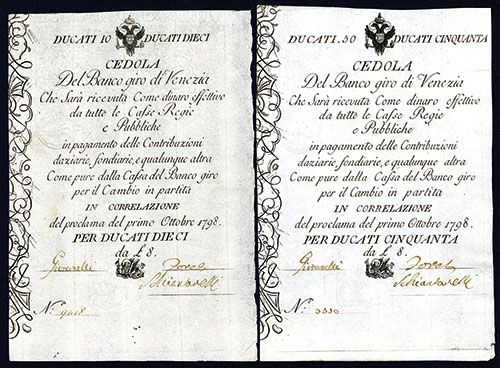 DUCATI 10 DUCATI DIECI
CEDOLA
Del Banco giro di Venezia
Che Sarà ricevuta Come dinaro effettivo
da tutte le Casse Regie
e Pubbliche
in pagamento delle Contribuzioni
daziarie, fondiarie, e qualunque altra
Come pure dalla Cassa del Banco giro
per il Cambio in partita
IN CORRELAZIONE
del proclama del primo Ottobre 1798.
PER DUCATI DIECI
da £ 8.
Schiantarelli
N.
DUCATI. 50 DUCATI CINQUANTA
CEDOLA
Del Banco giro di Venezia
Che Sarà ricevuta Come dinaro effettivo
da tutto le Casse Regie
e Pubbliche
in pagamento delle Contribuzioni
daziarie, fondiarie, e qualunque altra
Come pure dalla Cassa del Banco giro
per il Cambio in partita
IN CORRELAZIONE
del proclama del primo Ottobre 1798.
PER DUCATI CINQUANTA
da £ 8.
Schiantarelli
N. 3330